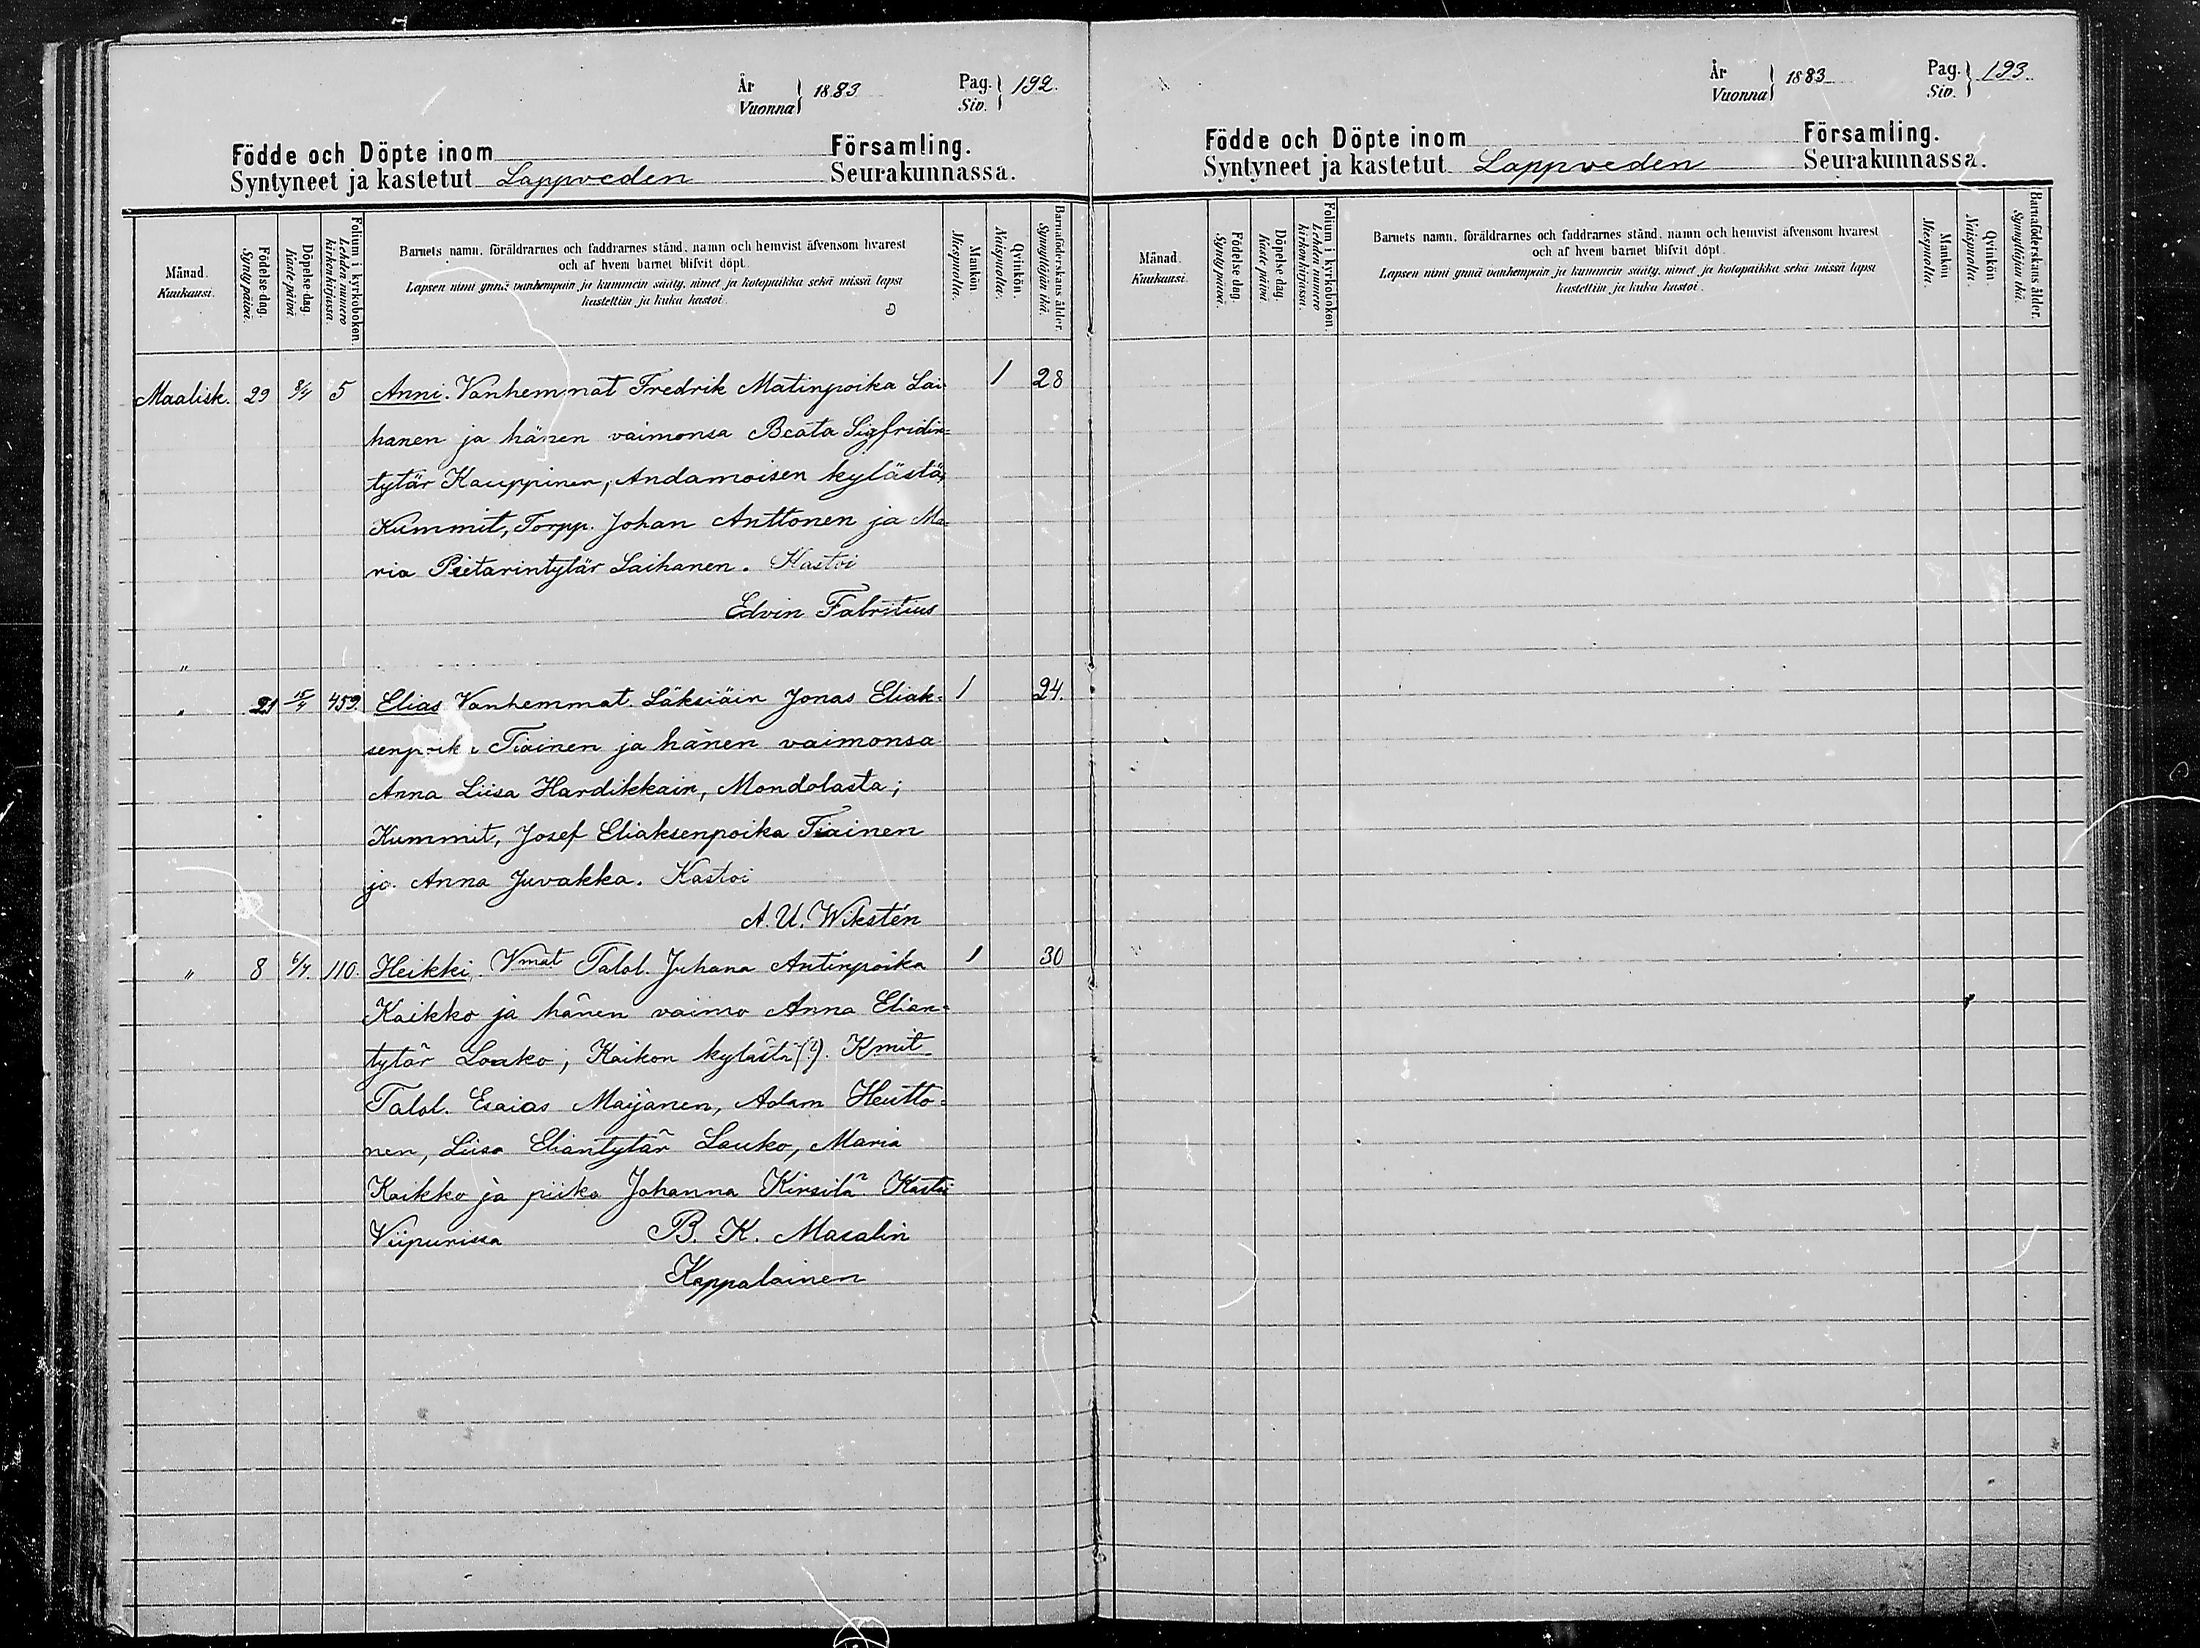 År
Vuonna } 1883
Pag.
Siv. } 192.
Födde och Döpte inom Församling.
Syntyneet ja kastetut Lappveden Seurakunnassa.
Månad. Kuukausi.
Födelse dag. Synty päivä.
Döpelse dag. Kaste päivä
Folium i kyrkoboken. Lehden numero kirkonkirjassa.
Barnets namn, föräldrarnes och faddrarnes stånd, namn och hemvist äfvensom hvarest
och af hvem barnet blifvit döpt.
Lapsen nimi ynnä vanhempain ja kummein sääty, nimet ja kotopaikka sekä missä lapsi
kastettiin ja kuka kastoi.
Mankön. Miespuolta.
Qvinkön. Naispuolta.
Barnaföderskans ålder. Synnyttäjän ikä.
Maalisk. 29 8/4 5 Anni. Vanhemmat Fredrik Matinpoika Lai- 1 28
hanen ja hänen vaimonsa Beata Sigfridin=
tytär Kauppinen, Andamoisen kylästä,
Kummit, Torpp. Johan Anttonen ja Ma-
ria Pietarintytär Laihanen. Kastoi
Edvin Fabritius
"
" 29 15/4 459. Elias Vanhemmat. Läksiäin Jonas Eliak= 1 24.
senpoika Tiainen ja hänen vaimonsa
Anna Liisa Hardikkain, Mondolasta;
Kummit, Josef Eliaksenpoika Tiainen
ja Anna Juvakka. Kastoi
A. U. Wikstén
" 8 6/4. 110. Heikki. Vmat Talol. Juhana Antinpoika 1 30
Kaikko ja hänen vaimo Anna Elian=
tytär Louko; Kaikon kylästä (?). Kmit
Talol. Esaias Maijanen, Adam Heutto=
nen, Liisa Eliantytär Lauko, Maria
Kaikko ja piika Johanna Kirsilä Kastoi
Viipurissa B. K. Masalin
Kappalainen
År
Vuonna } 1883
Pag.
Siv. } 193.
Födde och Döpte inom Församling.
Syntyneet ja kastetut Lappveden Seurakunnassa.
Månad. Kuukausi.
Födelse dag. Synty päivä.
Döpelse dag. Kaste päivä
Folium i kyrkoboken. Lehden numero kirkonkirjassa.
Barnets namn, föräldrarnes och faddrarnes stånd, namn och hemvist äfvensom hvarest
och af hvem barnet blifvit döpt.
Lapsen nimi ynnä vanhempain ja kummein sääty, nimet ja kotopaikka sekä missä lapsi
kastettiin ja kuka kastoi.
Mankön. Miespuolta.
Qvinkön. Naispuolta.
Barnaföderskans ålder. Synnyttäjän ikä.